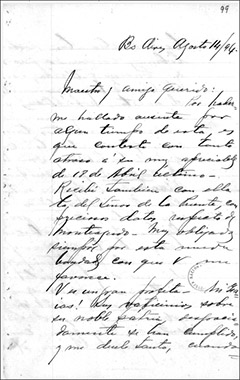 99
Bs Aires, Agosto 14/94.
Maestro y amigo querido:
Por haber
me hallado ausente por
algun tiempo de esta, es
que contesto con tanto
atraso a su muy apreciable
de 18 de Abril último.
Recibí tambien con ella
la del Señor de la
preciosos datos respecto de
Monteagudo. Muy obligado
siempre por esta nueva
bondad, con que V me
favorece.
V es un gran profeta. Mi
Sus vaticinios sobre
su noble patria,
damente se han cumplido,
y me duele tanto, cuando